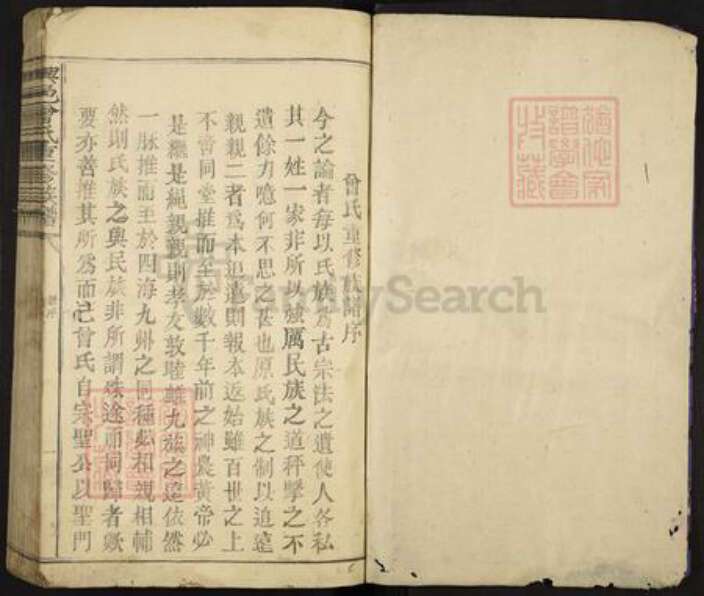 曾氏重修族譜序
今之論者每以氏族爲古宗法之遺使人各私
其一姓一家非所以強厲民族之道秤擊之不
遺餘力噫何不思之甚也原氏族之制以追遠
親親二者爲本追遠則報本返始雖百世之上
不啻同堂推而至於數千年前之神農黃帝必
是繼是繩親親則孝友敦睦雖九族之遠依然
一脉推而至於四海九州之同種必相親相輔
然則氏族之與民族非所謂殊途而同歸者歟
要亦善推其所爲而已曾氏自宗聖公以聖門
興邑曾氏重修族譜
FamilySearch